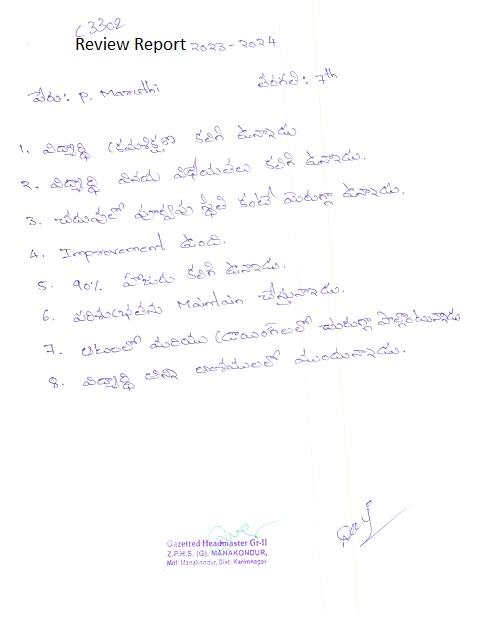 C3302
Review Report 2023-2024
పేరు: P. Maruthi
తరగతి: 7th
1. విద్యార్థి క్రమశిక్షణ కలిగి ఉన్నాడు
2. విద్యార్థి వినయ విధేయతలు కలిగి ఉన్నాడు.
3. చదువులో పూర్వపు స్థితి కంటే మెరుగ్గా ఉన్నాడు.
4. Improvement ఉంది.
5. 90% హాజరు కలిగి ఉన్నాడు.
6. పరిశుభ్రతను Maintain చేస్తున్నాడు.
7. ఆటలలో మరియు డ్రాయింగ్‌లలో చురుగ్గా పాల్గొంటున్నాడు
8. విద్యార్థి అన్ని అంశములలో ముందున్నాడు.
Gazetted Headmaster Gr-II
Z.P.H.S. (G), MANAKONDUR,
Mdl: Manakondur, Dist: Karimnagar